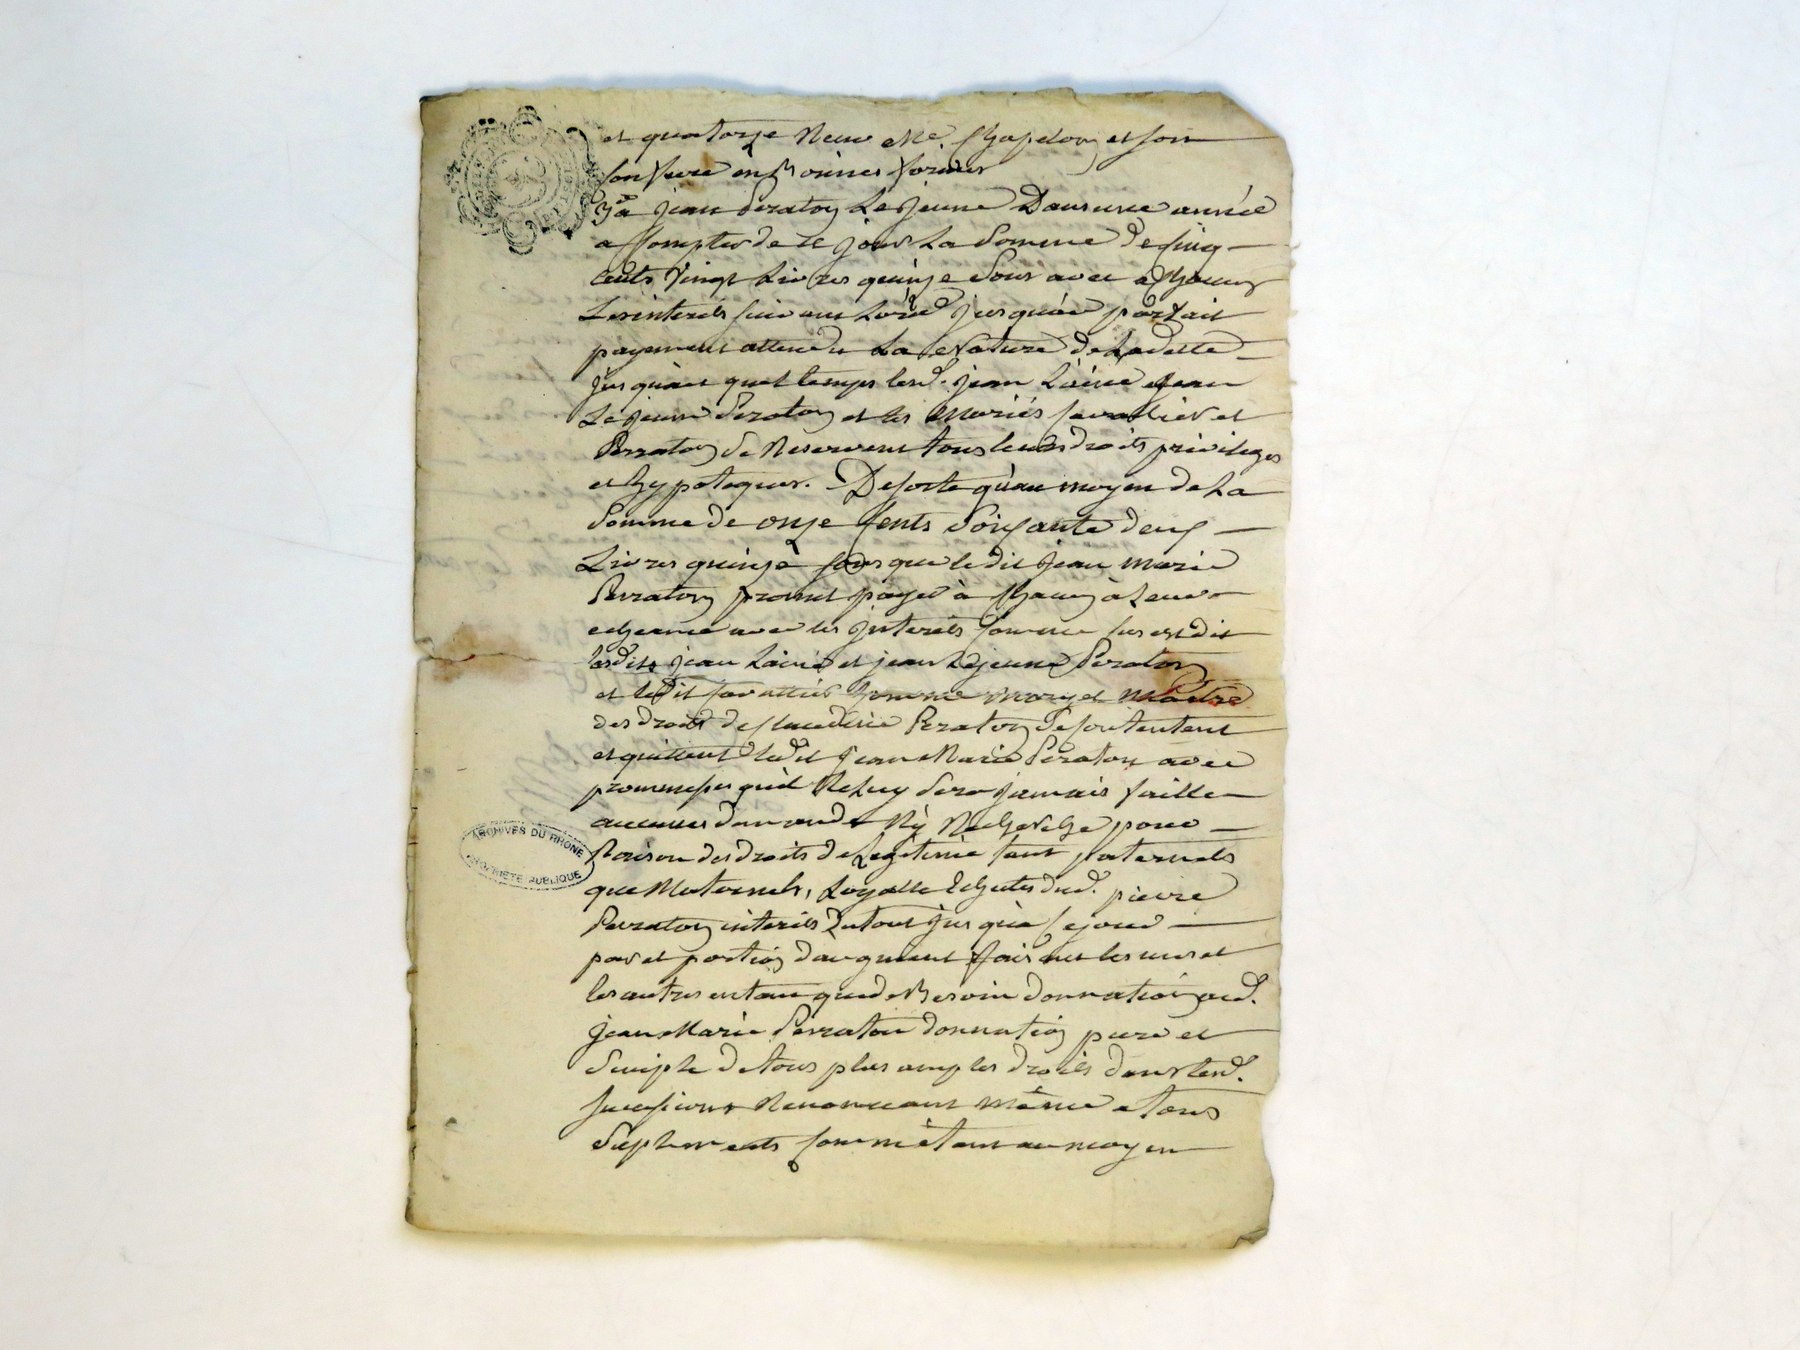 et quatorze Recu Me. Chapelon et son
confrere en Bonnes formes
3° a jean perraton Le jeune Dans une année
a Compter de ce jour La Somme de Cinq
Cents Vingt Livres quinze Sous avec a Chacun
Les interets suivant Lord.e jusquau parfait
payement attendu La Nature de La dette
jusquau quel temps lesd. jean L'ainé jean
Le jeune Perraton et les Mariés Cavallier et
Perraton se Reservent tous leurs droits privileges
et hypoteques. De sorte qu'au moyen de La
Somme de onze Cents Soixante deux
Livres quinze sous que ledit jean Marie
Perraton promet payer à Chacun à Leur
echeance avec les jnterets Comme sus est dit
lesdits jean Lainé et jean Le jeune Perraton
et ledit Cavallier Comme mary et Maitre
des droits de Claudine Perraton se Contentent
et quittent ledit jean Marie Perraton avec
promesses quil Ne Luy Sera jamais faitte
aucunes demande Ny Recherche pour
Raison des droits de Legitime tant paternels
que Maternels, Loyalle Echute dud. pierre
Perraton interets Du tout jusqua Ce jour
part et portion daugment faisant les uns et
les autres en tant que de Besoin donnation aud.
jean Marie Perraton donnation pure et
Simple de tous plus amples droits dans lesd.
Successions Renonceant même a tous
Suplements Comme etant au moyen
ARCHIVES DU RHONE
PROPRIÉTÉ PUBLIQUE